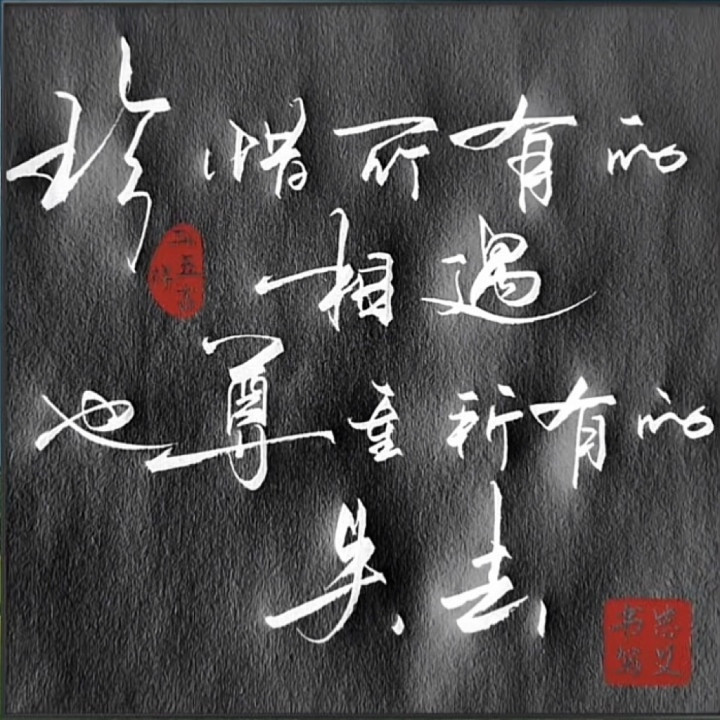 珍惜所有的
相遇
也尊重所有的
失去